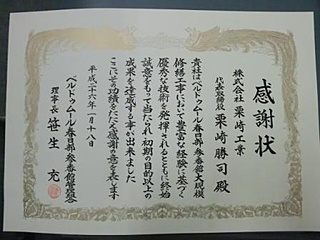 感謝状
株式会社 栗崎工業
代表取締役 栗崎勝司殿
貴社はベルドゥムール春日部参番館大規模
修繕工事において豊富な経験に基づく
優秀な技術を発揮されるとともに終始
誠意をもって当たられ初期の目的以上の
成果を達成する事が出来ました
ここにその功績をたたえ感謝の意を表します
平成二十六年一月十八日
ベルドゥムール春日部参番館管理組合
理事長 笹生 充